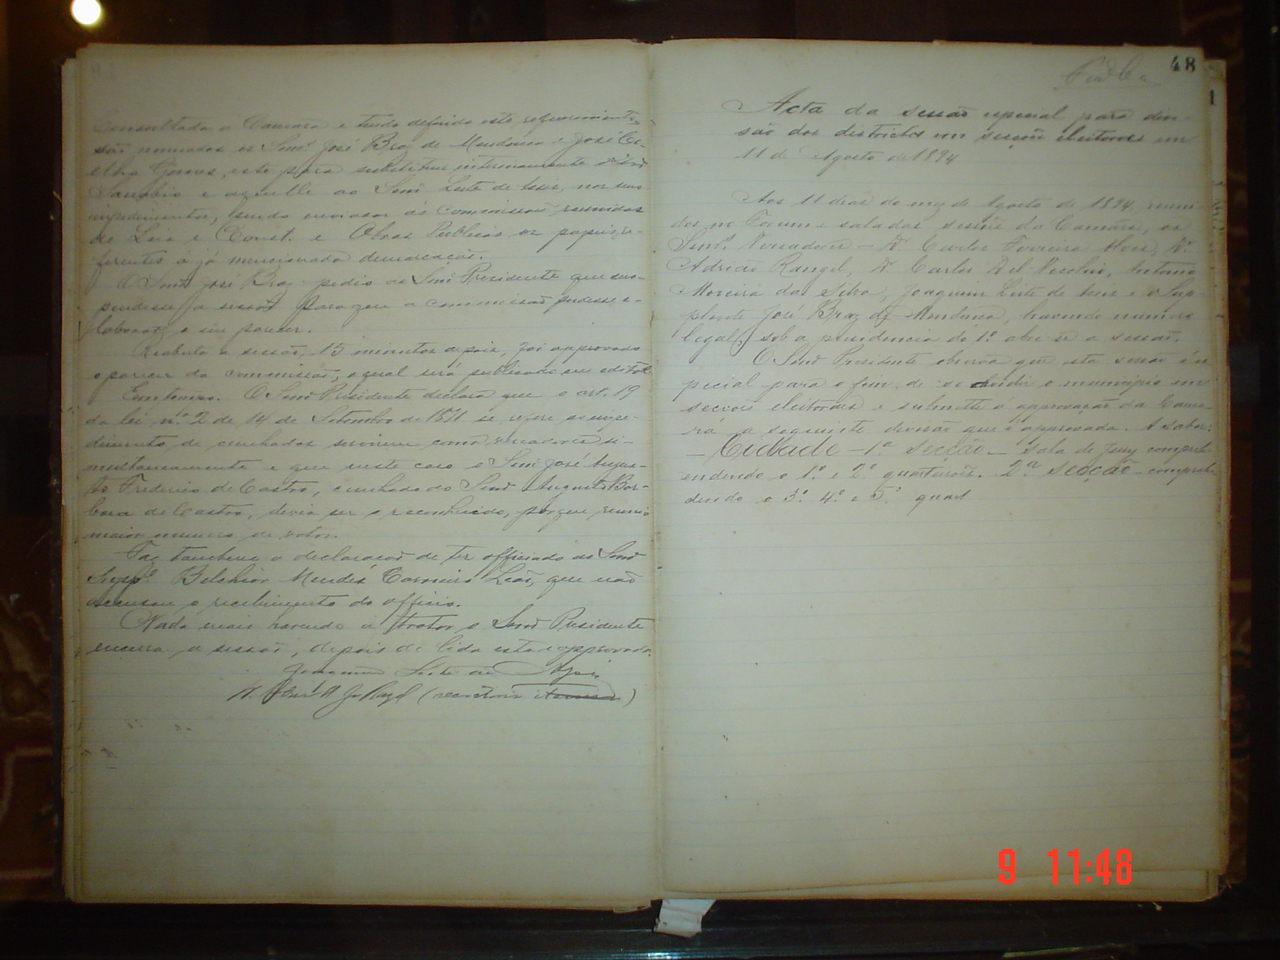 Consultada a Camara e tendo deferido este requerimento
são nomeados os Snrs. José Braz de Mendonça e José Co-
elho Gomes, este para substituir interinamente o Snr
e aquelle ao Snr Leite de Assis, nos seus
impedimentos, sendo enviados ás commissões reunidas
de Leis e Const. e Obras Publicas os papeis, re-
ferentes á já mencionada demarcação.
O Snr José Braz pedio ao Snr Presidente que sus-
pendesse a sessão para que a commissão podesse e-
laborar o seu parecer.
Reaberta a sessão, 15 minutos depois, foi approvado
o parecer da commissão, o qual será publicado em edital
Em tempo. O Snr Presidente declara que o art. 19
da lei n.º 2 de 14 de Setembro de 1891 se refere ao impe-
dimento de cunhados servirem como vereadores si-
multaneamente e que neste caso o Snr José Augus-
to Frederico de Castro, cunhado do Snr Augusto Bar-
boza de Castro, devia ser o reconhecido, porque reunio
maior numero de votos.
Faz tambem a declaração de ter officiado ao Snr
Suppe. Belchior Mendes Carneiro Leão, que não
accusou o recebimento do officio.
Nada mais havendo a tratar o Snr Presidente
encerra a sessão, depois de lida esta e approvada.
Joaquim Leite de Assis
(secretario
48
Acta da sessão especial para divi-
são dos districtos em secções eleitoraes em
11 de Agosto de 1894
Aos 11 dias do mez de Agosto de 1894, reuni-
dos no Forum e sala das sessões da Camara, os
Snrs. Vereadores - Dr. Carlos Ferreira Alves, Dr.
Adrião Rangel, Dr. Carlos Del-Vecchio, Antonio
Moreira da Silva, Joaquim Leite de Assis e o Sup-
plente José Braz de Mendonça, havendo numero
legal, sob a presidencia do 1.º abre-se a sessão.
O Snr Presidente observa que esta sessão é es-
pecial para o fim de se dividir o municipio em
secções eleitoraes e submette á approvação da Cama-
ra a seguinte divisão que é approvada. A saber:
- Cidade - 1.ª secção - sala do Jury compreh-
endendo o 1.º e 2.º quarteirões. 2.ª Secção - compreh-
dendo o 3.º 4.º e 5.º quart
9 11:48